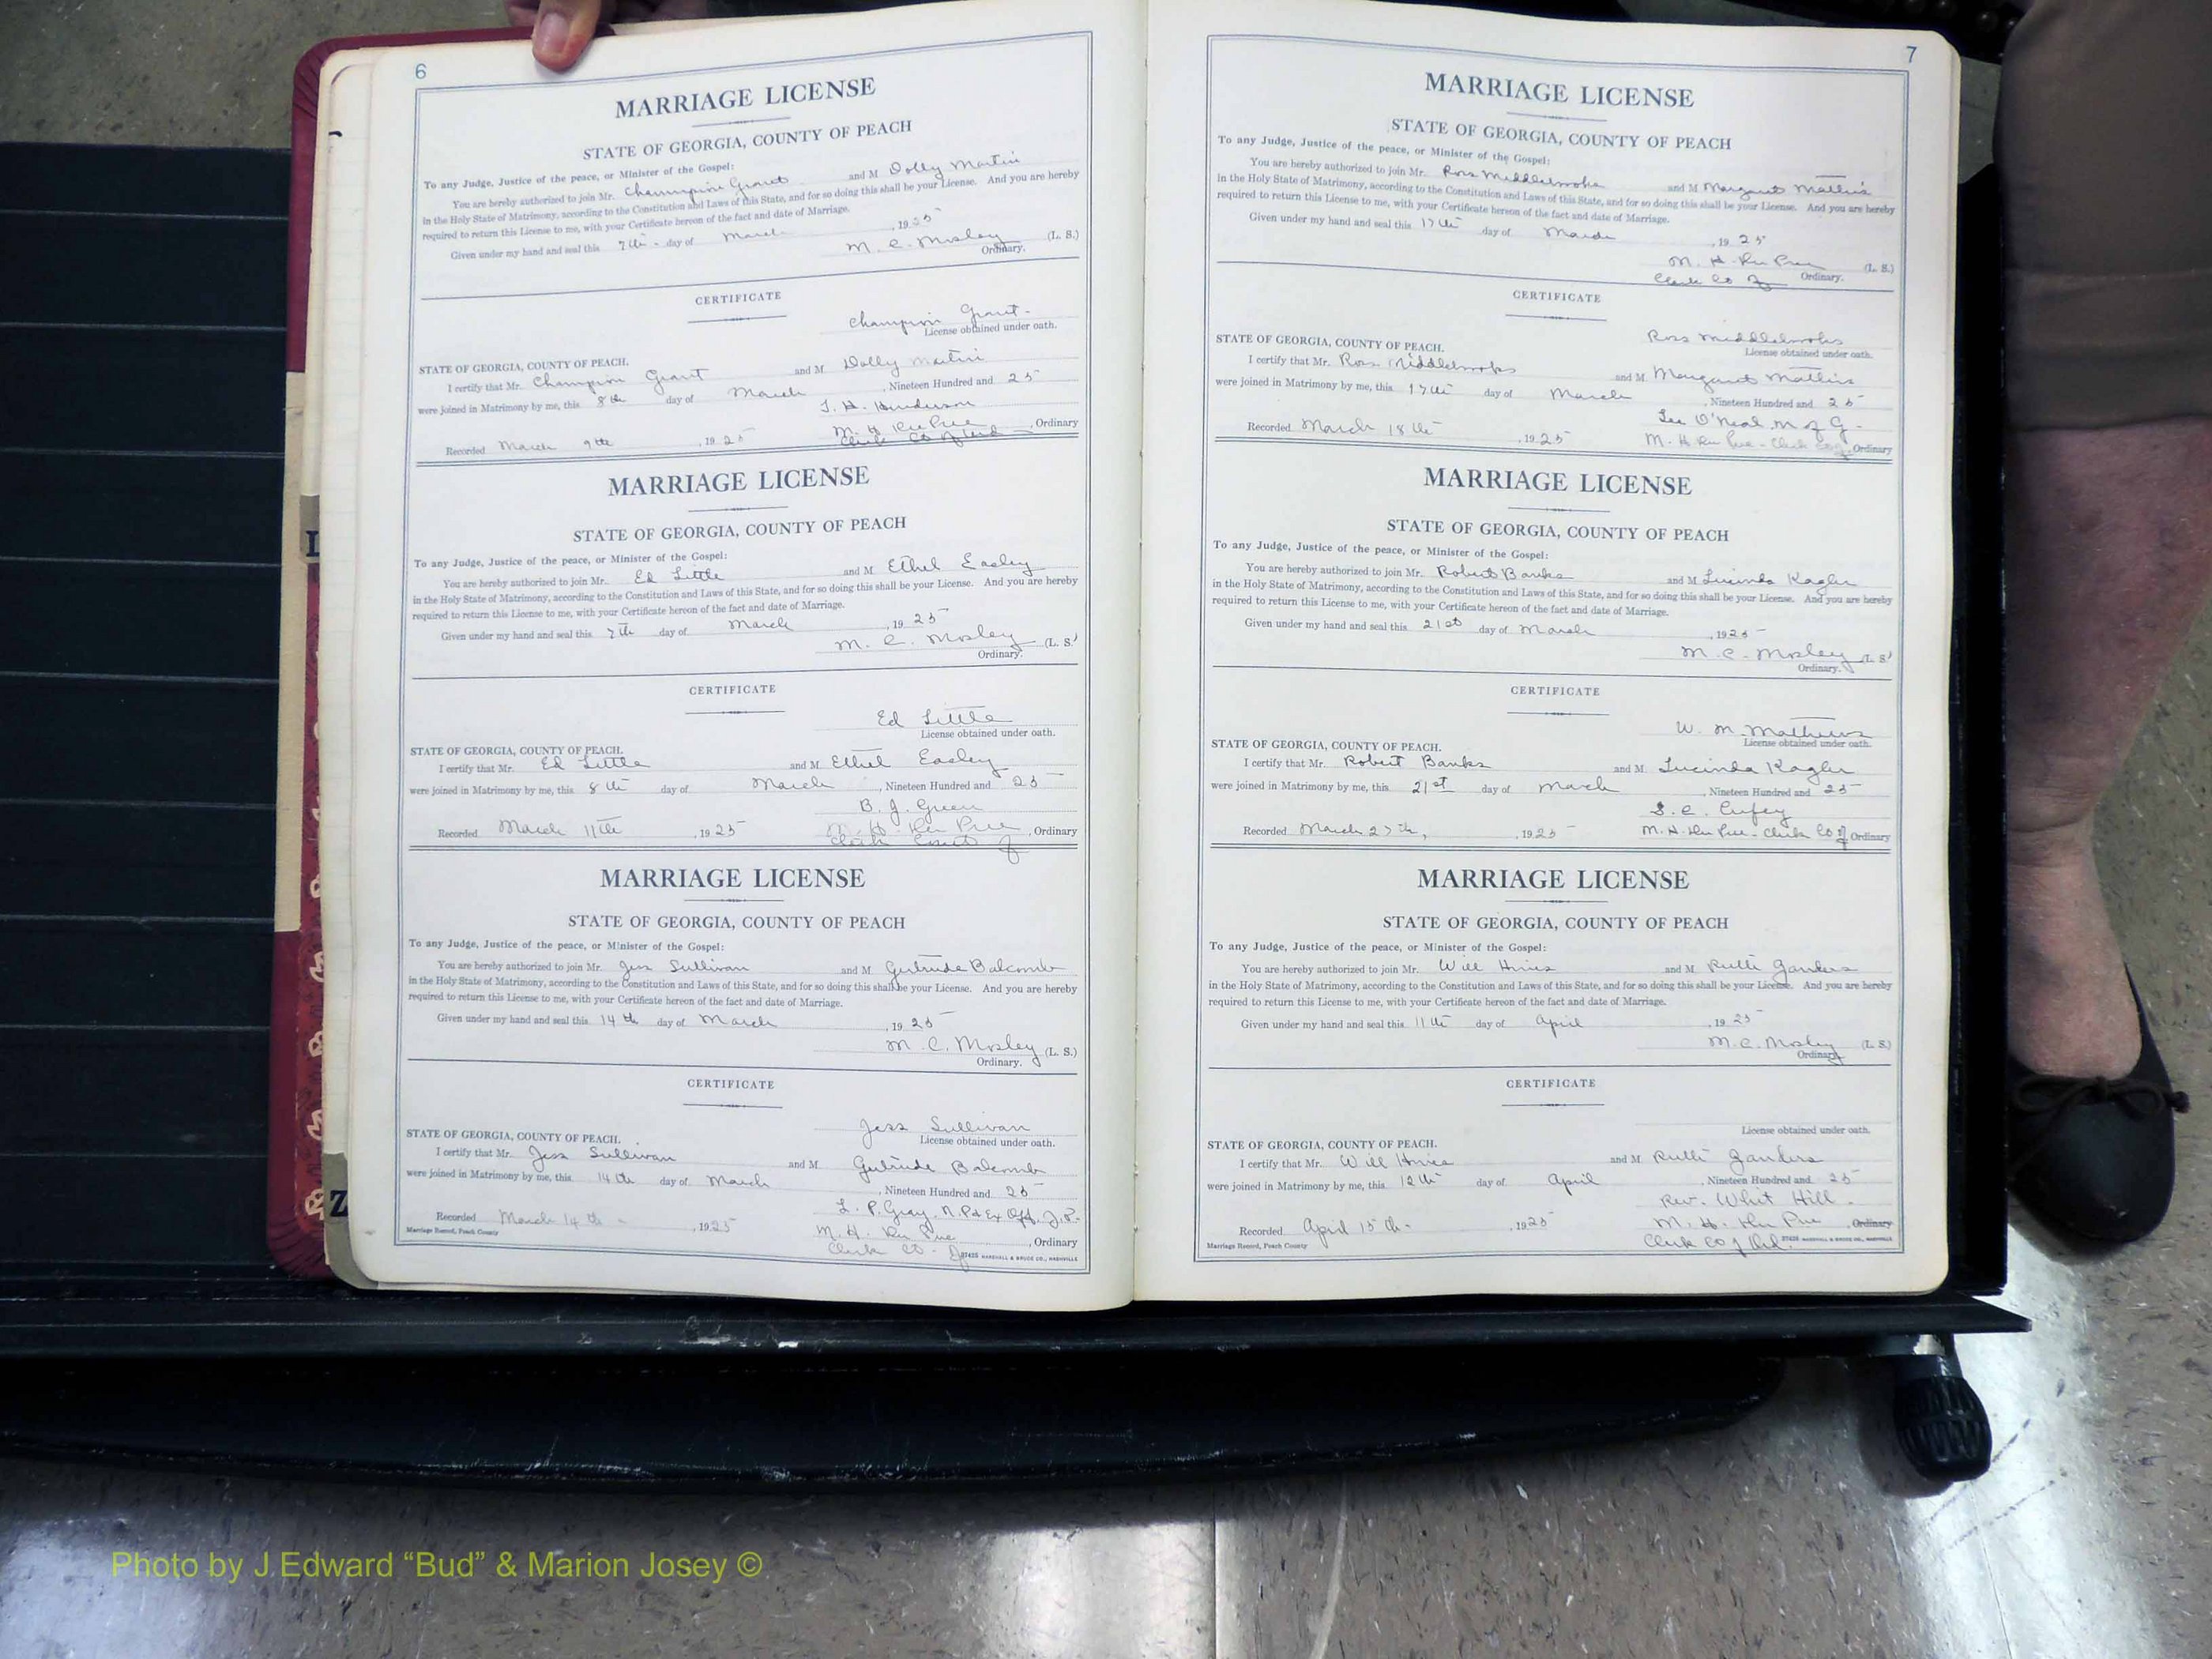 6
MARRIAGE LICENSE
STATE OF GEORGIA, COUNTY OF PEACH
To any Judge, Justice of the peace, or Minister of the Gospel:
You are hereby authorized to join Mr. Champion Grant and M Dolly Martin
in the Holy State of Matrimony, according to the Constitution and Laws of this State, and for so doing this shall be your License. And you are hereby
required to return this License to me, with your Certificate hereon of the fact and date of Marriage.
Given under my hand and seal this 7th day of March, 1925
M. C. Mosley (L. S.)
Ordinary.
CERTIFICATE
Champion Grant
License obtained under oath.
STATE OF GEORGIA, COUNTY OF PEACH.
I certify that Mr. Champion Grant and M Dolly Martin
were joined in Matrimony by me, this 8th day of March, Nineteen Hundred and 25
J. H. Henderson
Recorded March 9th, 1925 M. H., Ordinary
Clerk Co of Ord
MARRIAGE LICENSE
STATE OF GEORGIA, COUNTY OF PEACH
To any Judge, Justice of the peace, or Minister of the Gospel:
You are hereby authorized to join Mr. Ed Little and M Ethel Easley
in the Holy State of Matrimony, according to the Constitution and Laws of this State, and for so doing this shall be your License. And you are hereby
required to return this License to me, with your Certificate hereon of the fact and date of Marriage.
Given under my hand and seal this 7th day of March, 1925
M. C. Mosley (L. S.)
Ordinary.
CERTIFICATE
Ed Little
License obtained under oath.
STATE OF GEORGIA, COUNTY OF PEACH.
I certify that Mr. Ed Little and M Ethel Easley
were joined in Matrimony by me, this 8th day of March, Nineteen Hundred and 25
B. J. Green
Recorded March 11th, 1925 M. H., Ordinary
Clerk Court of
MARRIAGE LICENSE
STATE OF GEORGIA, COUNTY OF PEACH
To any Judge, Justice of the peace, or Minister of the Gospel:
You are hereby authorized to join Mr. Jess Sullivan and M Gertrude Balcomb
in the Holy State of Matrimony, according to the Constitution and Laws of this State, and for so doing this shall be your License. And you are hereby
required to return this License to me, with your Certificate hereon of the fact and date of Marriage.
Given under my hand and seal this 14th day of March, 1925
M. C. Mosley (L. S.)
Ordinary.
CERTIFICATE
Jess Sullivan
License obtained under oath.
STATE OF GEORGIA, COUNTY OF PEACH.
I certify that Mr. Jess Sullivan and M Gertrude Balcomb
were joined in Matrimony by me, this 14th day of March, Nineteen Hundred and 25
L. P. Gray. N. P. & Ex Off. J. P.
Recorded March 14th, 1925 M. H., Ordinary
Clerk Co.
Marriage Record, Peach County 37425 MARSHALL & BRUCE CO., NASHVILLE
7
MARRIAGE LICENSE
STATE OF GEORGIA, COUNTY OF PEACH
To any Judge, Justice of the peace, or Minister of the Gospel:
You are hereby authorized to join Mr. Ross Middlebrooks and M Margaret Mathis
in the Holy State of Matrimony, according to the Constitution and Laws of this State, and for so doing this shall be your License. And you are hereby
required to return this License to me, with your Certificate hereon of the fact and date of Marriage.
Given under my hand and seal this 17th day of March, 1925
M. H. (L. S.)
Clerk Co Ordinary.
CERTIFICATE
Ross Middlebrooks
License obtained under oath.
STATE OF GEORGIA, COUNTY OF PEACH.
I certify that Mr. Ross Middlebrooks and M Margaret Mathis
were joined in Matrimony by me, this 17th day of March, Nineteen Hundred and 25
Lee O'Neal M of G.
Recorded March 18th, 1925 M. H. - Clerk Co of, Ordinary
MARRIAGE LICENSE
STATE OF GEORGIA, COUNTY OF PEACH
To any Judge, Justice of the peace, or Minister of the Gospel:
You are hereby authorized to join Mr. Robert Banks and M Lucinda Kagler
in the Holy State of Matrimony, according to the Constitution and Laws of this State, and for so doing this shall be your License. And you are hereby
required to return this License to me, with your Certificate hereon of the fact and date of Marriage.
Given under my hand and seal this 21st day of March, 1925
M. C. Mosley (L. S.)
Ordinary.
CERTIFICATE
W. M. Mathews
License obtained under oath.
STATE OF GEORGIA, COUNTY OF PEACH.
I certify that Mr. Robert Banks and M Lucinda Kagler
were joined in Matrimony by me, this 21st day of March, Nineteen Hundred and 25
S. C. Cufey
Recorded March 27th, 1925 M. H. - Clerk Co of Ordinary
MARRIAGE LICENSE
STATE OF GEORGIA, COUNTY OF PEACH
To any Judge, Justice of the peace, or Minister of the Gospel:
You are hereby authorized to join Mr. Will Hines and M Ruth Zanders
in the Holy State of Matrimony, according to the Constitution and Laws of this State, and for so doing this shall be your License. And you are hereby
required to return this License to me, with your Certificate hereon of the fact and date of Marriage.
Given under my hand and seal this 11th day of April, 1925
M. C. Mosley (L. S.)
Ordinary.
CERTIFICATE
License obtained under oath.
STATE OF GEORGIA, COUNTY OF PEACH.
I certify that Mr. Will Hines and M Ruth Zanders
were joined in Matrimony by me, this 12th day of April, Nineteen Hundred and 25
Rev. Whit Hill.
Recorded April 15th, 1925 M. H., Ordinary
Clerk Co of Ord.
Marriage Record, Peach County 37425 MARSHALL & BRUCE CO., NASHVILLE
Z
Photo by J Edward “Bud” & Marion Josey ©